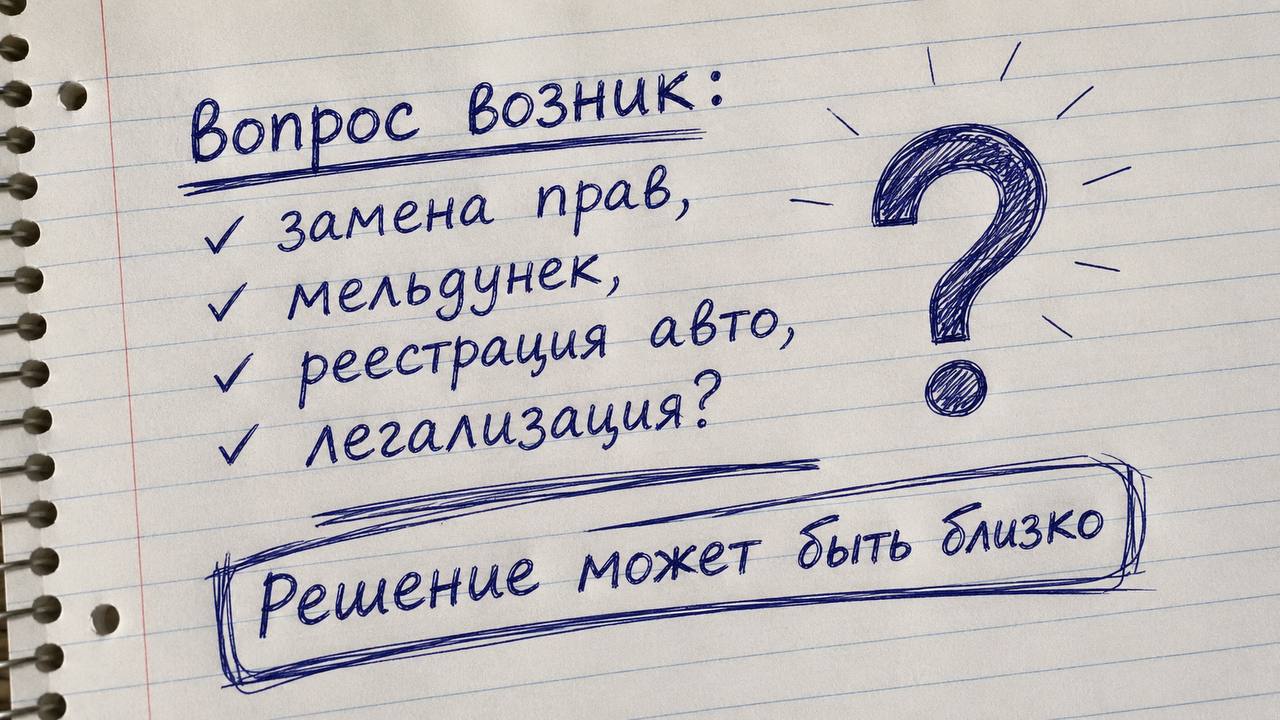 Вопрос возник:
✓ замена прав,
✓ мельдунек,
✓ реестрация авто,
✓ легализация?
?
Решение может быть близко